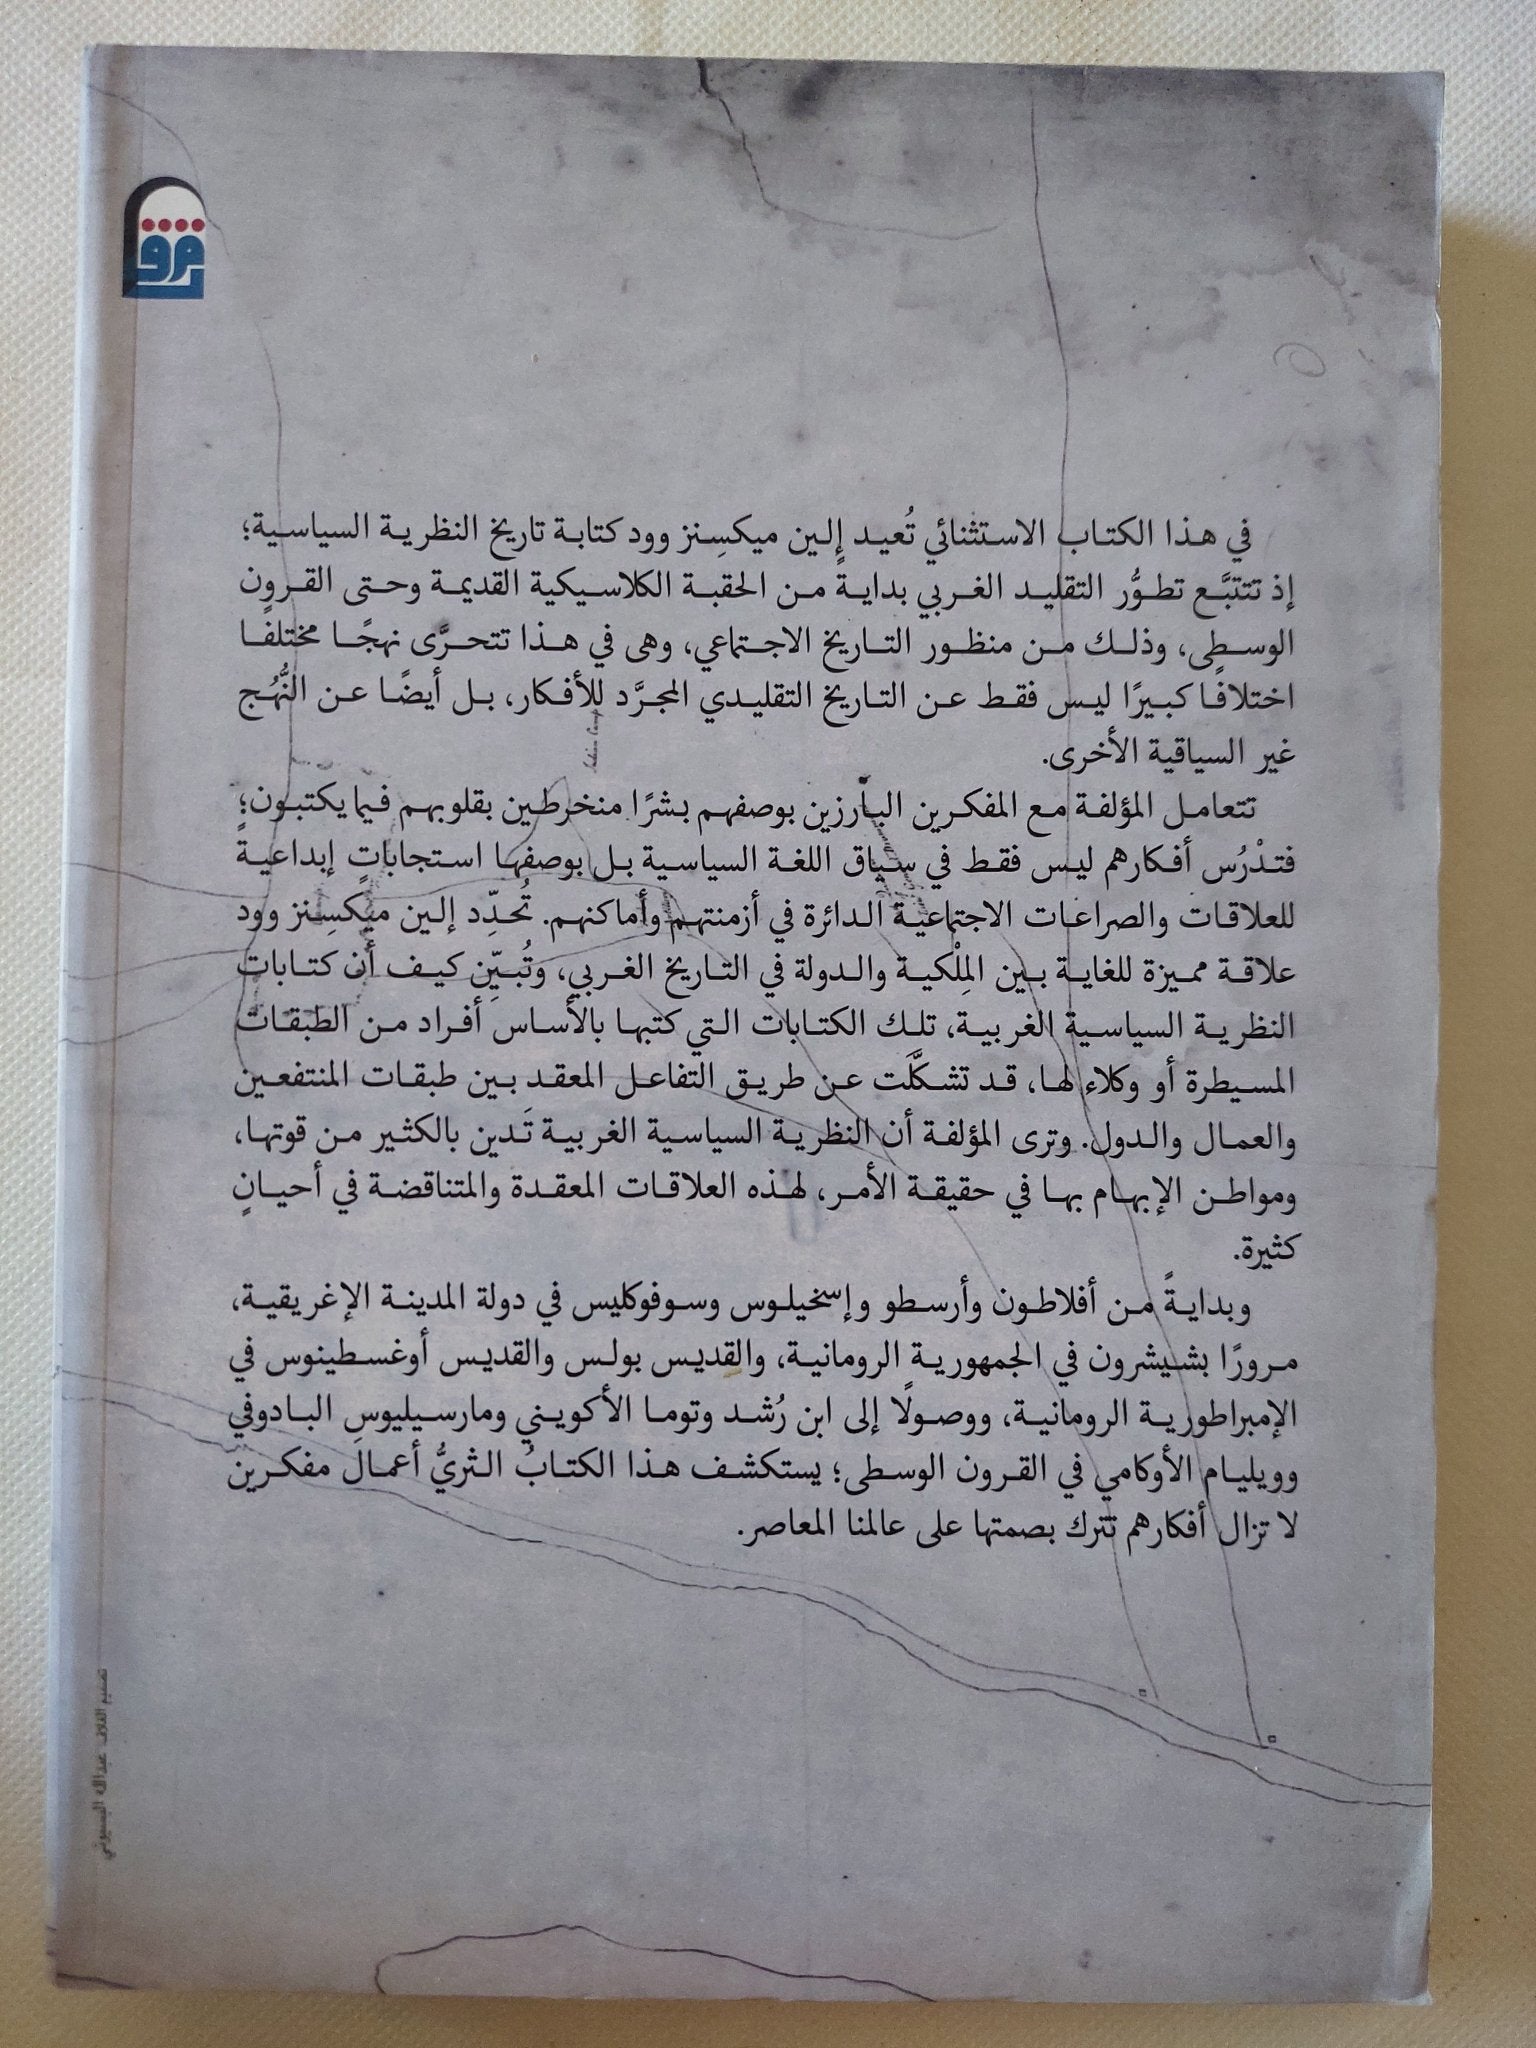 في هذا الكتاب الاستثنائي تُعيد إلين ميكسِنز وود كتابة تاريخ النظرية السياسية؛
إذ تتتبَّع تطوُّر التقليد الغربي بدايةً من الحقبة الكلاسيكية القديمة وحتى القرون
الوسطى، وذلك من منظور التاريخ الاجتماعي، وهى في هذا تتحرَّى نهجًا مختلفًا
اختلافًا كبيرًا ليس فقط عن التاريخ التقليدي المجرَّد للأفكار، بل أيضًا عن النُّهُج
غير السياقية الأخرى.
تتعامل المؤلفة مع المفكرين البارزين بوصفهم بشرًا منخرطين بقلوبهم فيما يكتبون؛
فتدْرُس أفكارهم ليس فقط في سياق اللغة السياسية بل بوصفها استجاباتٍ إبداعيةً
للعلاقات والصراعات الاجتماعية الدائرة في أزمنتهم وأماكنهم. تُحدِّد إلين ميكسِنز وود
علاقة مميزة للغاية بين المِلْكية والدولة في التاريخ الغربي، وتُبيِّن كيف أن كتابات
النظرية السياسية الغربية، تلك الكتابات التي كتبها بالأساس أفراد من الطبقات
المسيطرة أو وكلاء لها، قد تشكَّلت عن طريق التفاعل المعقد بين طبقات المنتفعين
والعمال والدول. وترى المؤلفة أن النظرية السياسية الغربية تَدين بالكثير من قوتها،
ومواطن الإبهام بها في حقيقة الأمر، لهذه العلاقات المعقدة والمتناقضة في أحيانٍ
كثيرة.
وبدايةً من أفلاطون وأرسطو وإسخيلوس وسوفوكليس في دولة المدينة الإغريقية،
مرورًا بشيشرون في الجمهورية الرومانية، والقديس بولس والقديس أوغسطينوس في
الإمبراطورية الرومانية، ووصولًا إلى ابن رُشد وتوما الأكويني ومارسيليوس البادوفي
وويليام الأوكامي في القرون الوسطى؛ يستكشف هذا الكتابُ الثريُّ أعمالَ مفكرين
لا تزال أفكارهم تترك بصمتها على عالمنا المعاصر.
تصميم الغلاف عبدالله البسيوني